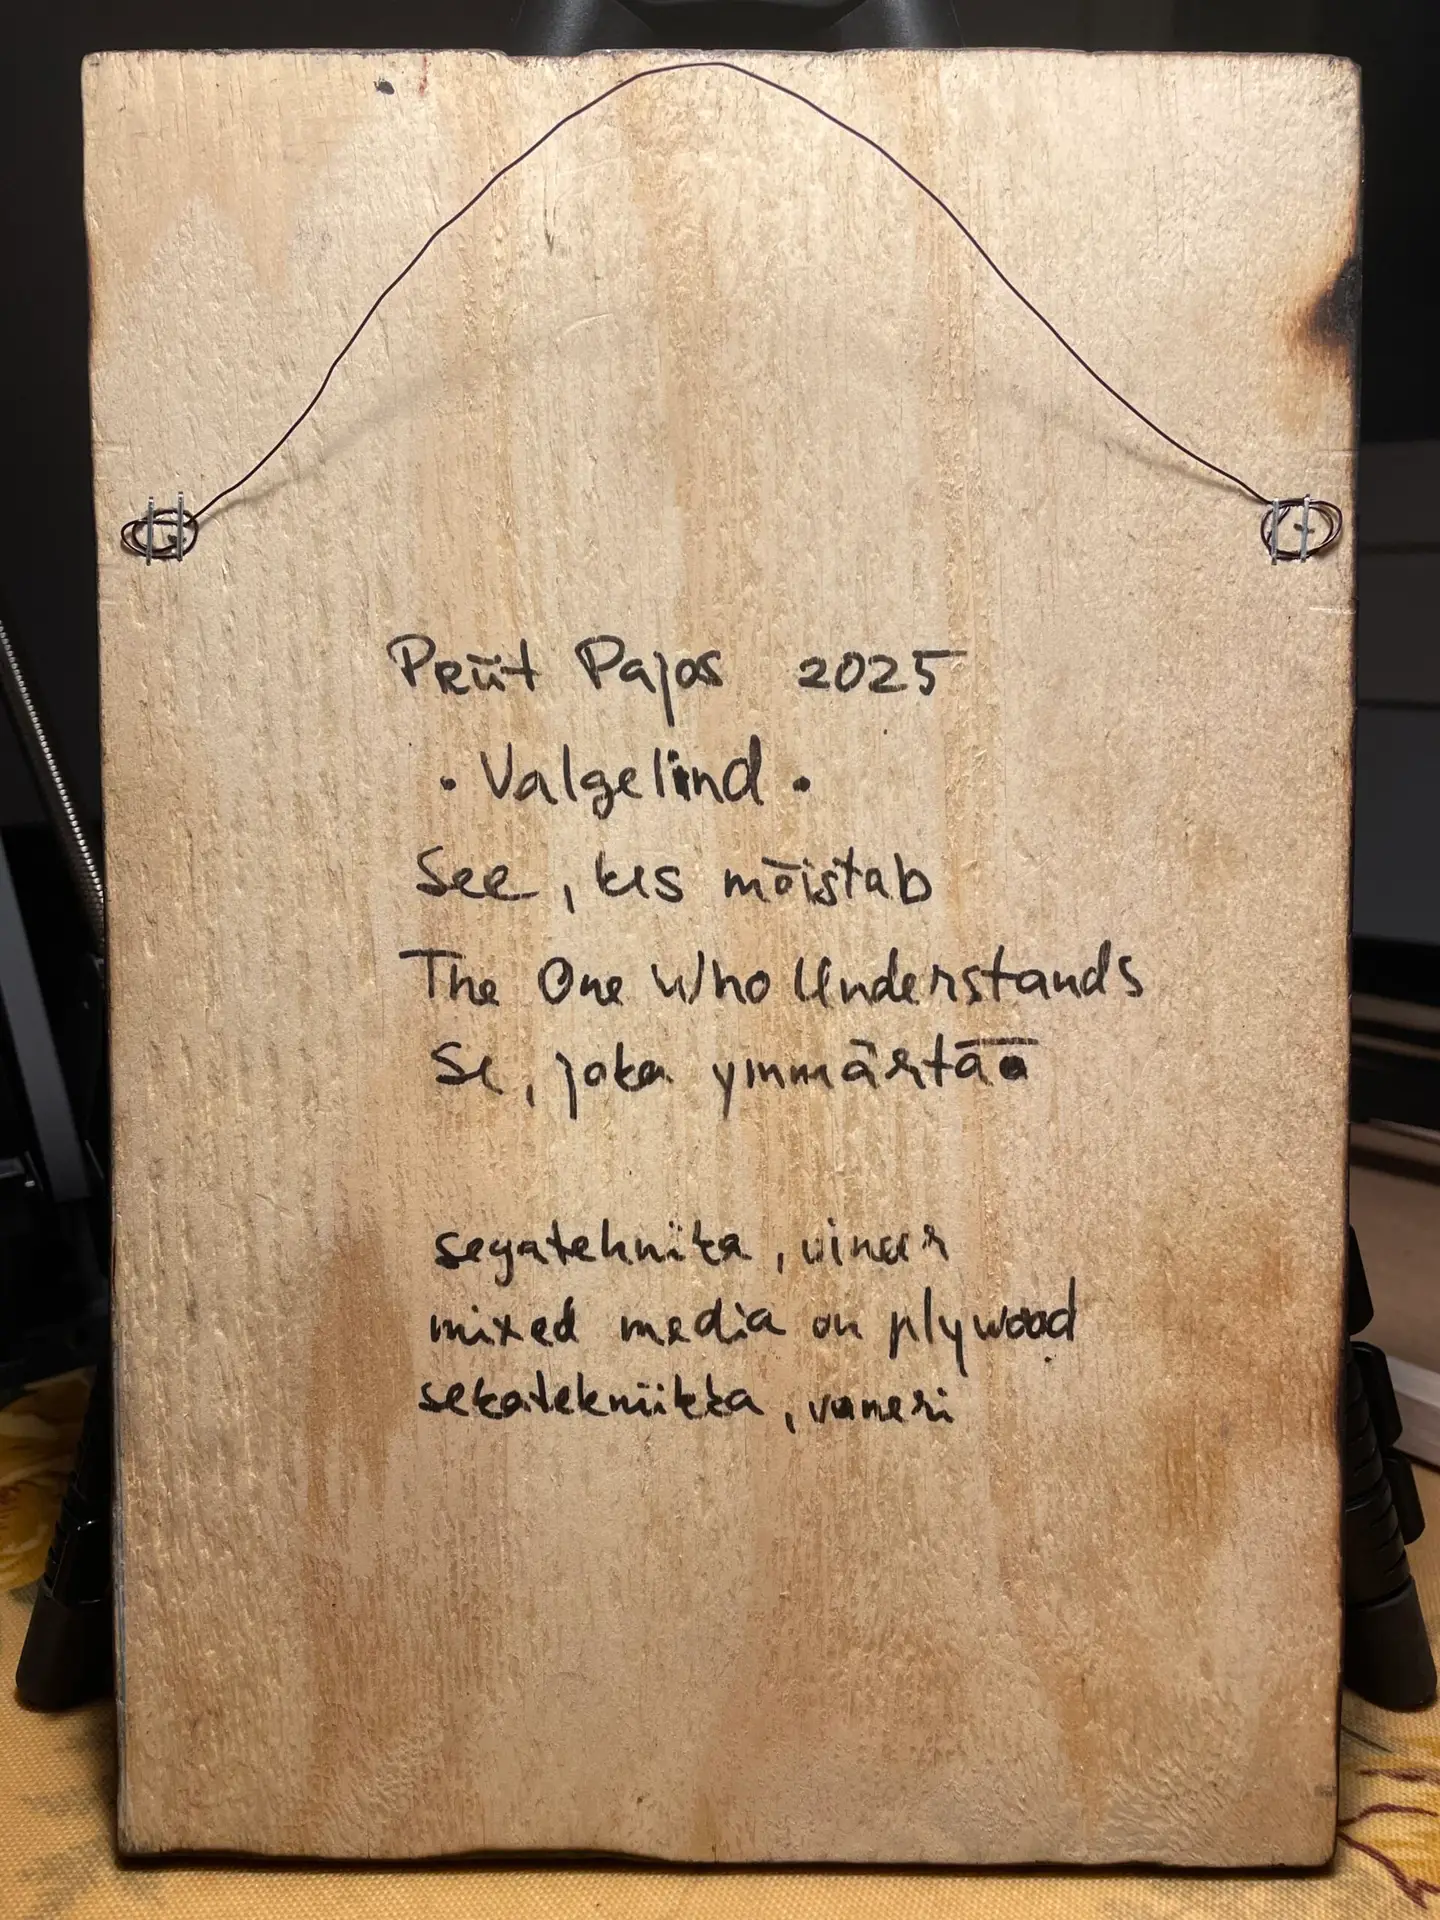 Priit Pajos 2025
• Valgelind •
See, kes mõistab
The One Who Understands
Se, joka ymmärtää
segatehnika, vineer
mixed media on plywood
sekatekniikka, vaneri